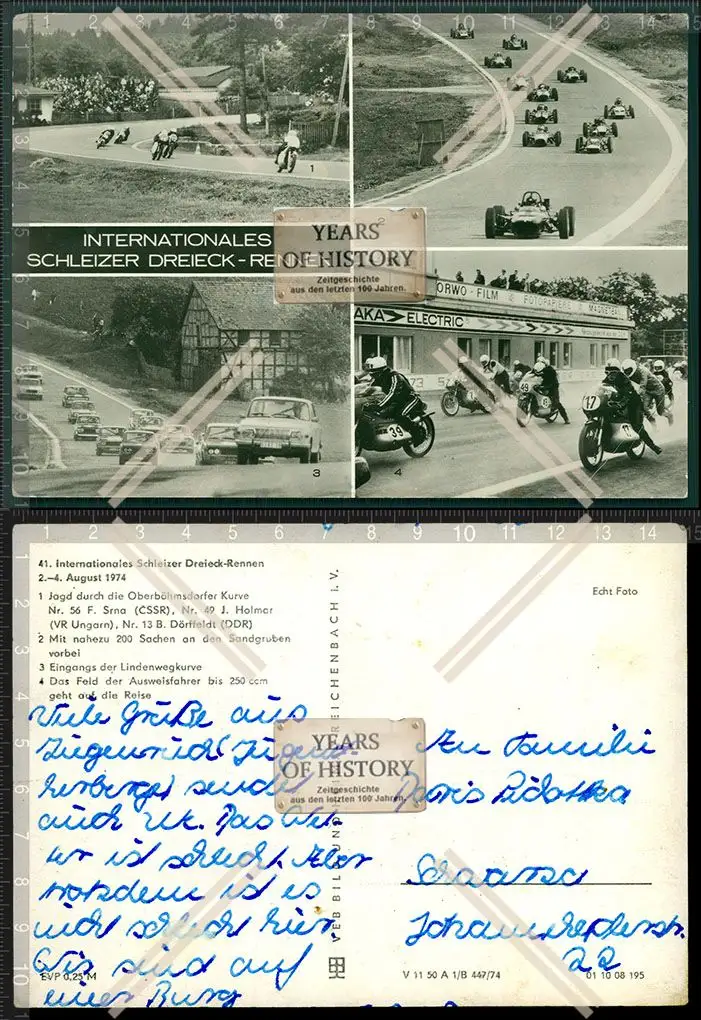 1
2
INTERNATIONALES
SCHLEIZER DREIECK-RENNEN
YEARS
OF HISTORY
Zeitgeschichte
aus den letzten 100 Jahren.
ORWO-FILM FOTOPAPIERE MAGNETBA
AKA ELECTRIC
39
49
17
3
4
41. Internationales Schleizer Dreieck-Rennen
2.—4. August 1974
1 Jagd durch die Oberböhmsdorfer Kurve
Nr. 56 F. Srna (CSSR), Nr. 49 J. Holmar
(VR Ungarn), Nr. 13 B. Dörffeldt (DDR)
2 Mit nahezu 200 Sachen an den Sandgruben
vorbei
3 Eingangs der Lindenwegkurve
4 Das Feld der Ausweisfahrer bis 250 ccm
geht auf die Reise
Echt Foto
REICHENBACH I. V.
VEB BILD UND
Viele Grüße aus
Ziegenrück (Jugend-
herberge) sendet
auch Ut. Das Wet-
ter ist schlecht. Aber
trotzdem ist es
nicht schlecht hier.
Wir sind auf
einer Burg
YEARS
OF HISTORY
Zeitgeschichte
aus den letzten 100 Jahren.
An Familie
Doris
22
EVP 0,25 M
V 11 50 A 1/B 447/74
01 10 08 195